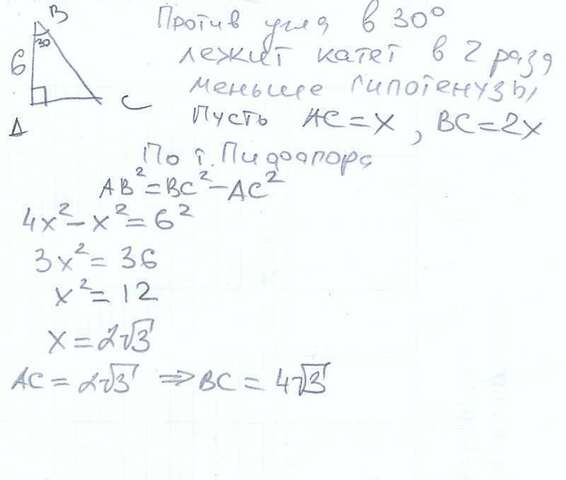 B
30
6
A
C
Против угла в 30°
лежит катет в 2 раза
меньше гипотенузы
Пусть AC=x, BC=2x
По т. Пифагора
AB²=BC²-AC²
4x²-x²=6²
3x²=36
x²=12
x=2√3
AC=2√3 ⇒ BC=4√3